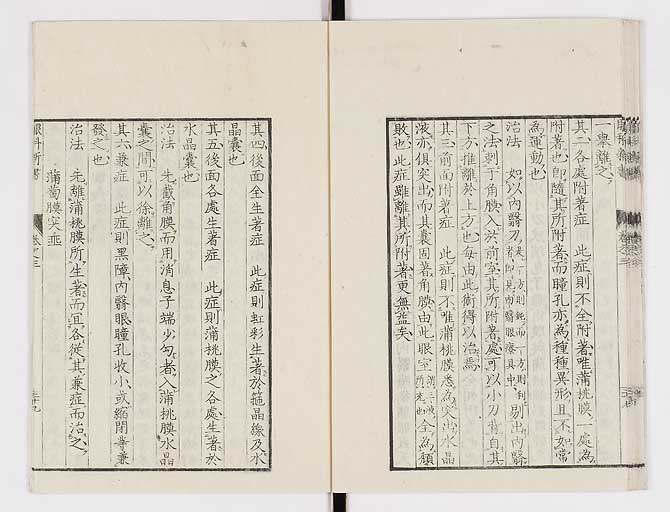 一擧離之
其二各處附著症 此症則不全附著唯蒲桃膜一處為
附著也即隨其所附著而瞳孔亦為種種異形且不如常
為運動也
治法 如以内翳刀 是一方則鈍而一方則利 剔出内翳
之法刺于角膜入於前室其所附著處可以小刀背自其
下方推離於上方也每由此術得以治焉
其三前面附著症 此症則不唯蒲桃膜悉為突出水晶
液亦俱突出而其嚢固著角膜由此眼室 全為
敗也此症雖離其所附著更無益矣
其四後面全生著症 此症則虹彩生著於箍晶線及水
晶嚢也
其五後面各處生著症 此症則蒲桃膜之各處生著於
水晶嚢也
治法 先截角膜而用消息子端少勾者入蒲桃膜水晶
嚢之間可以徐離之
其六兼症 此症則黒障内翳眼瞳孔收小或縮閉等兼
發之也
治法 先離蒲桃膜所生著而宜各從其兼症而治之
蒲萄膜突垂
眼科新書
卷之三